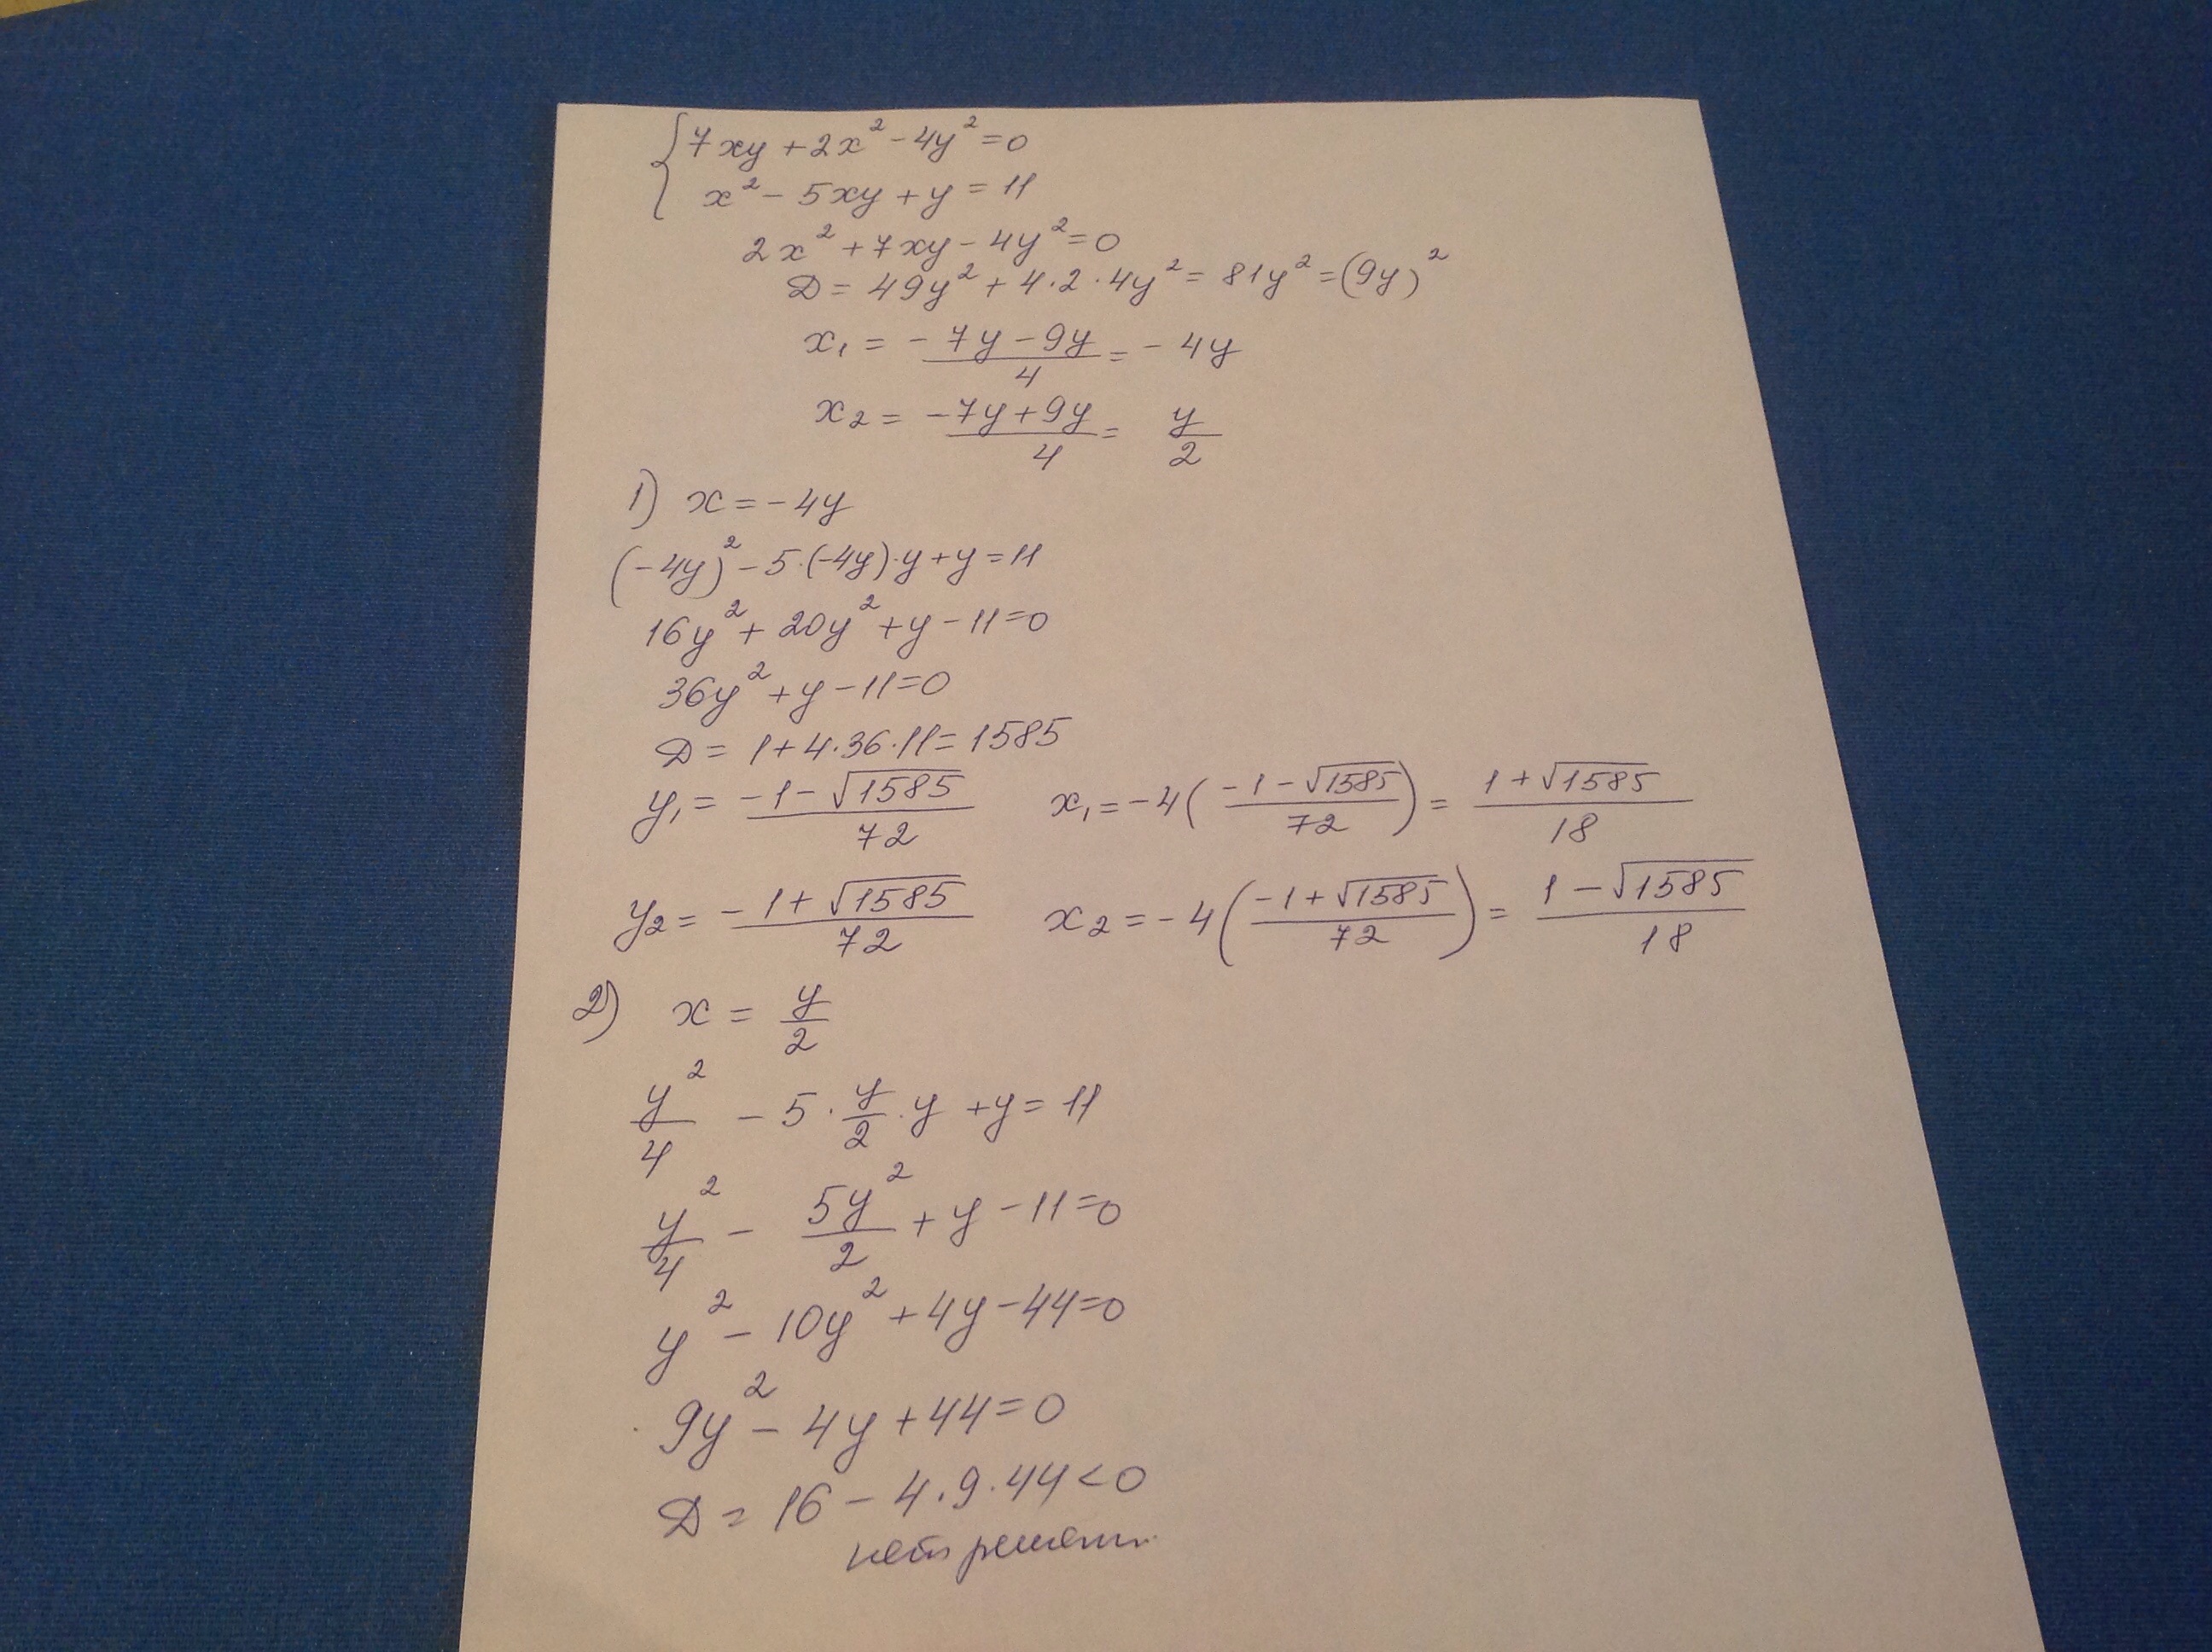 {7xy + 2x² - 4y² = 0
x² - 5xy + y = 11
2x² + 7xy - 4y² = 0
D = 49y² + 4·2·4y² = 81y² = (9y)²
x₁ = (-7y - 9y)/4 = -4y
x₂ = (-7y + 9y)/4 = y/2
1) x = -4y
(-4y)² - 5·(-4y)·y + y = 11
16y² + 20y² + y - 11 = 0
36y² + y - 11 = 0
D = 1 + 4·36·11 = 1585
y₁ = (-1 - √1585)/72 x₁ = -4((-1 - √1585)/72) = (1 + √1585)/18
y₂ = (-1 + √1585)/72 x₂ = -4((-1 + √1585)/72) = (1 - √1585)/18
2) x = y/2
y²/4 - 5·y/2·y + y = 11
y²/4 - 5y²/2 + y - 11 = 0
y² - 10y² + 4y - 44 = 0
9y² - 4y + 44 = 0
D = 16 - 4·9·44 < 0
нет решени